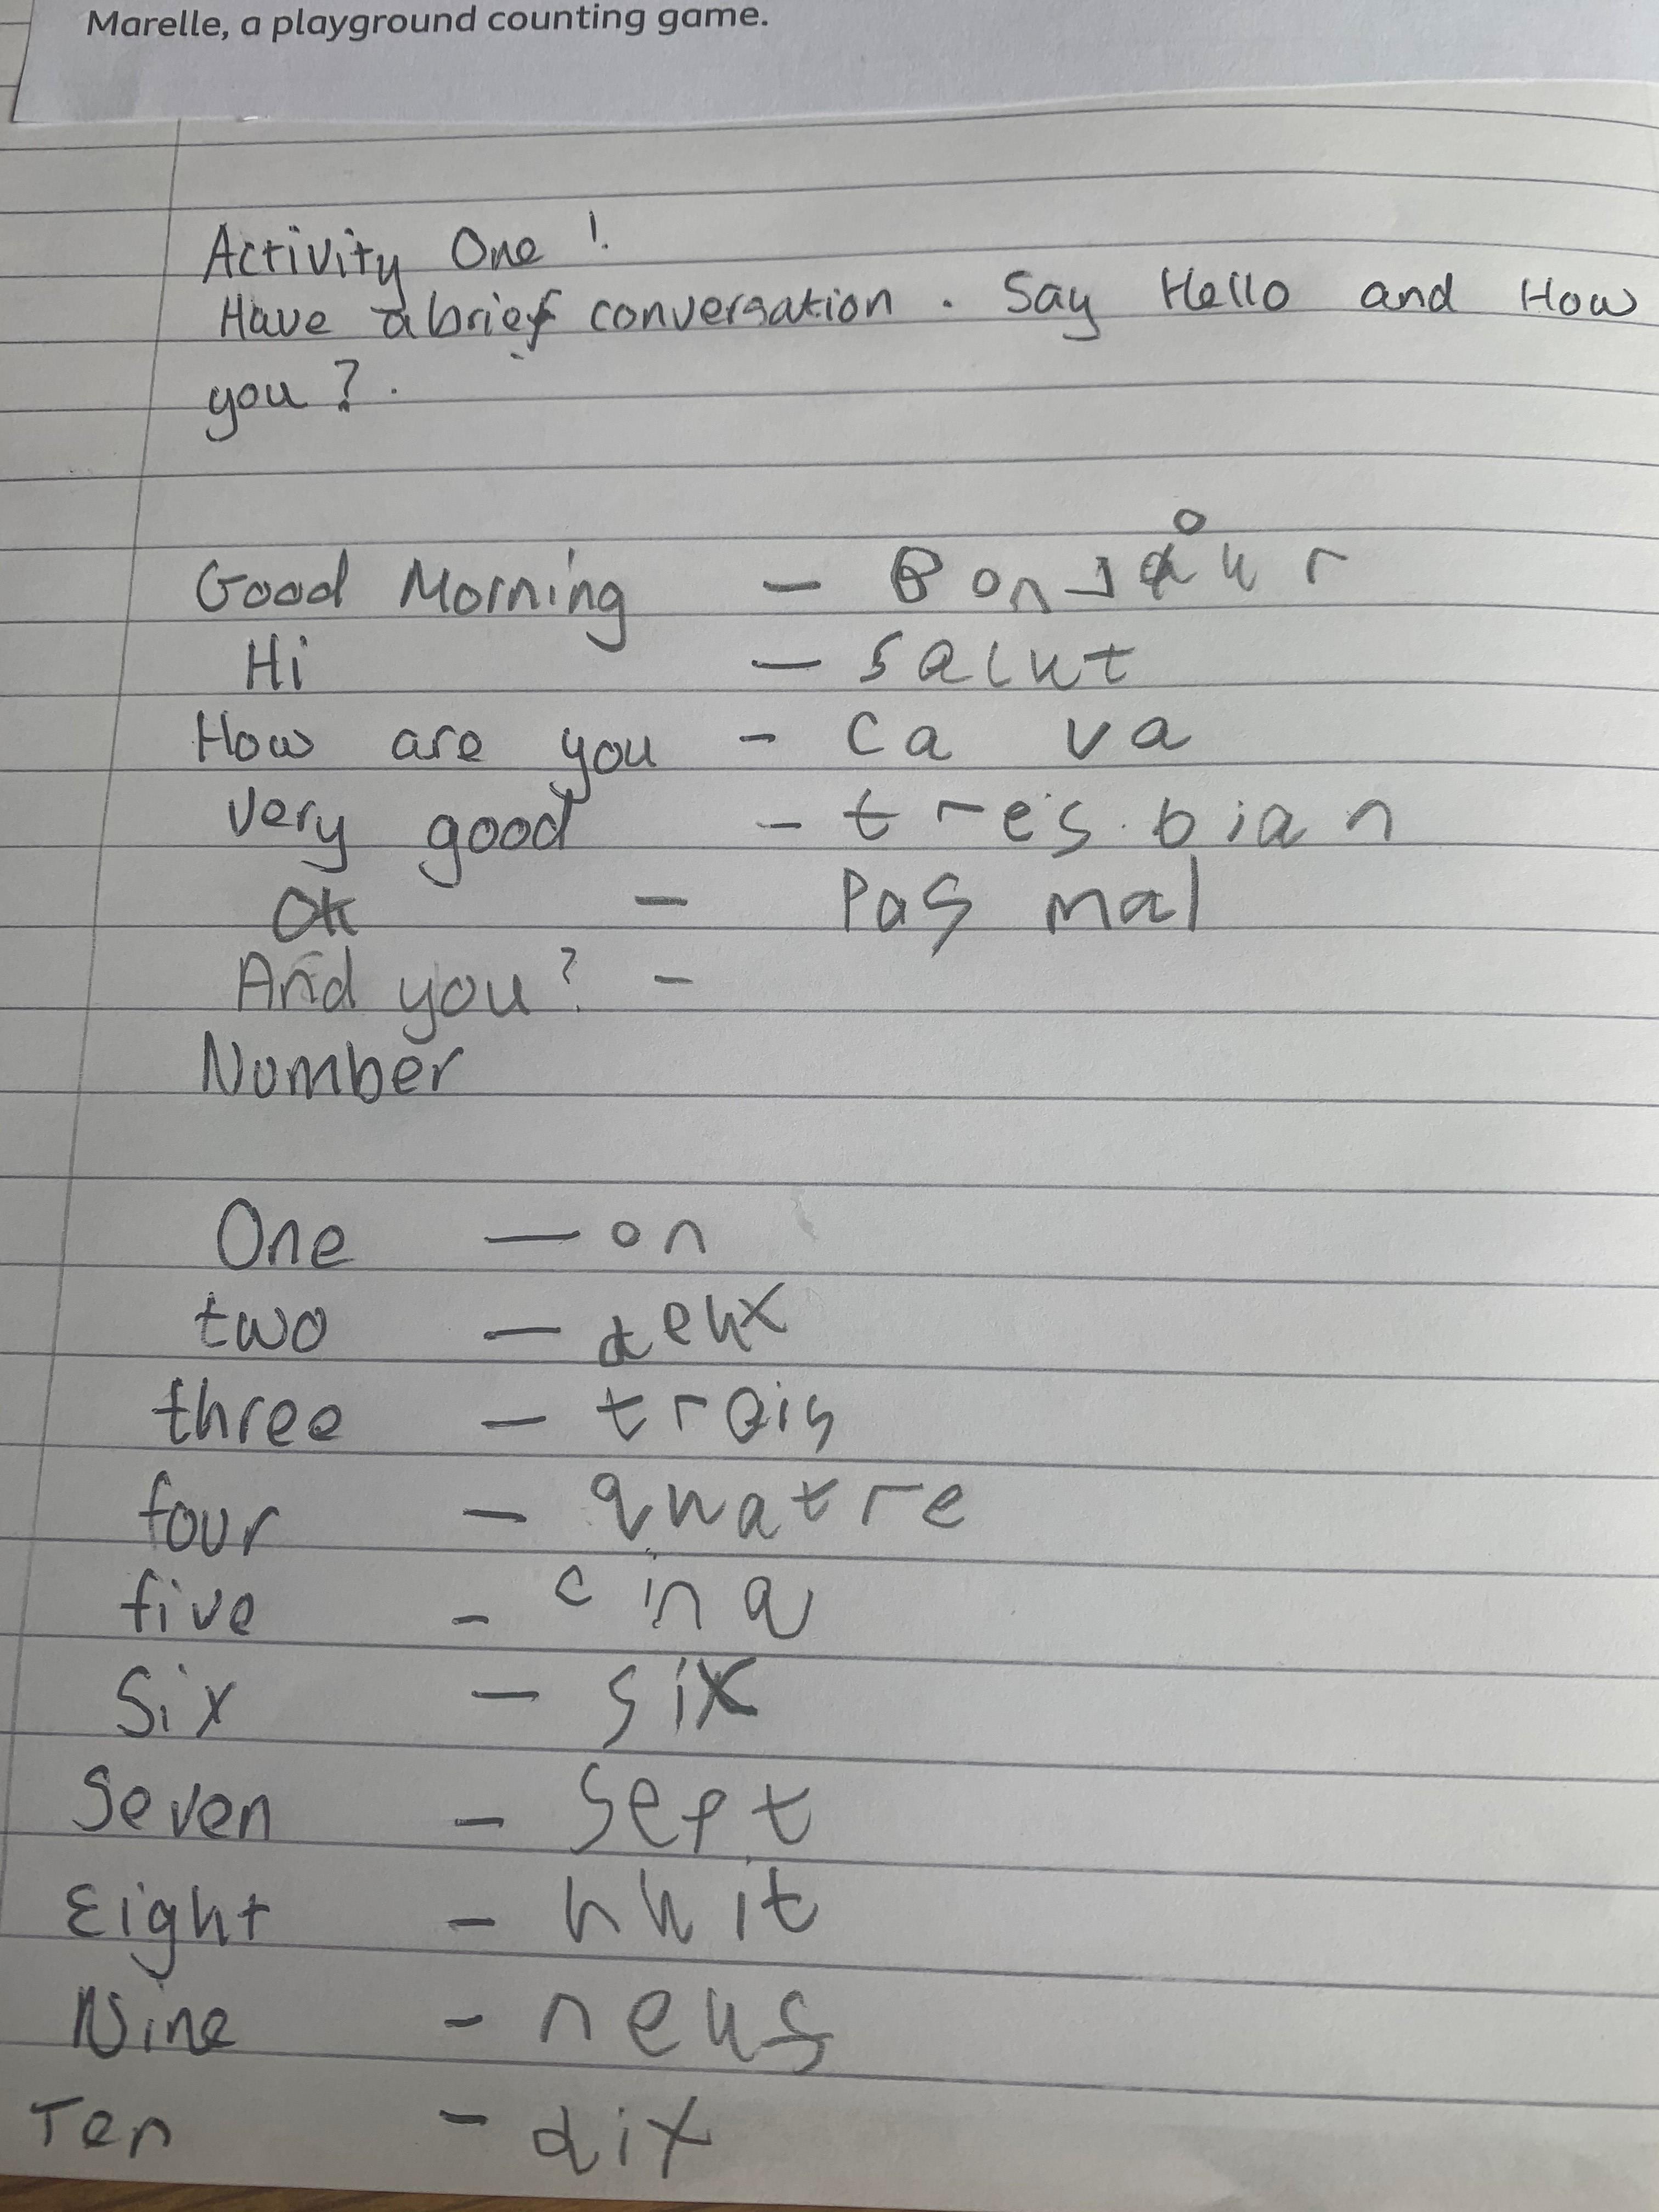 Marelle, a playground counting game.
Activity One !
Have a brief conversation . Say Hello and How
you ? .
Good Morning — Bonjour
Hi — Salut
How are you - Ca va
very good - tres bian
Ok - Pas mal
And you? -
Number
One — on
two — deux
three — trois
four — quatre
five - cinq
Six — six
Seven — Sept
Eight - huit
Nine - neuf
Ten - dix